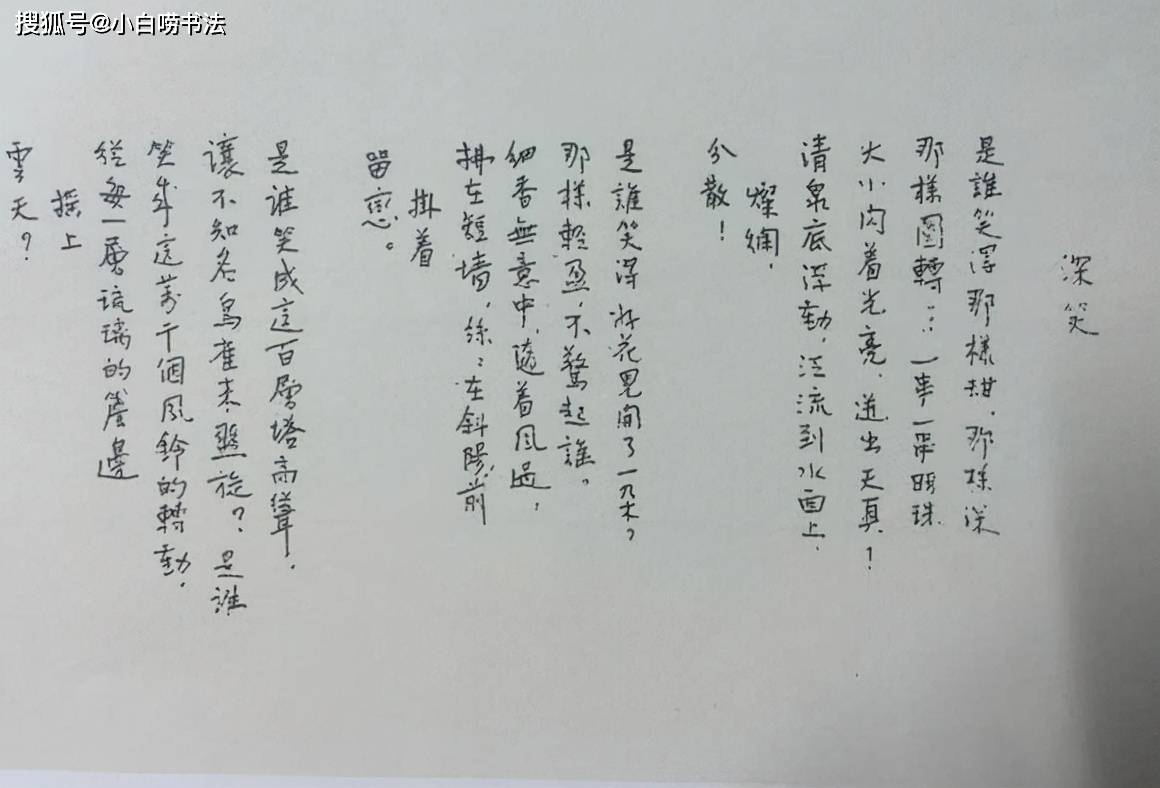 搜狐号@小白唠书法
深笑
是誰笑得那樣甜,那樣深
那樣圓轉?一串一串明珠
大小閃着光亮,迸出天真!
清泉底浮動,泛流到水面上,
燦爛,
分散!
是誰笑得好花兒開了一朵?
那樣輕盈,不驚起誰。
細香無意中,隨着風過,
拂在短墻,絲絲在斜陽前
掛着
留戀。
是誰笑成這百層塔高聳,
讓不知名鳥雀來盤旋?是誰
笑成這萬千個風鈴的轉動,
從每一層琉璃的簷邊
搖上
雲天?